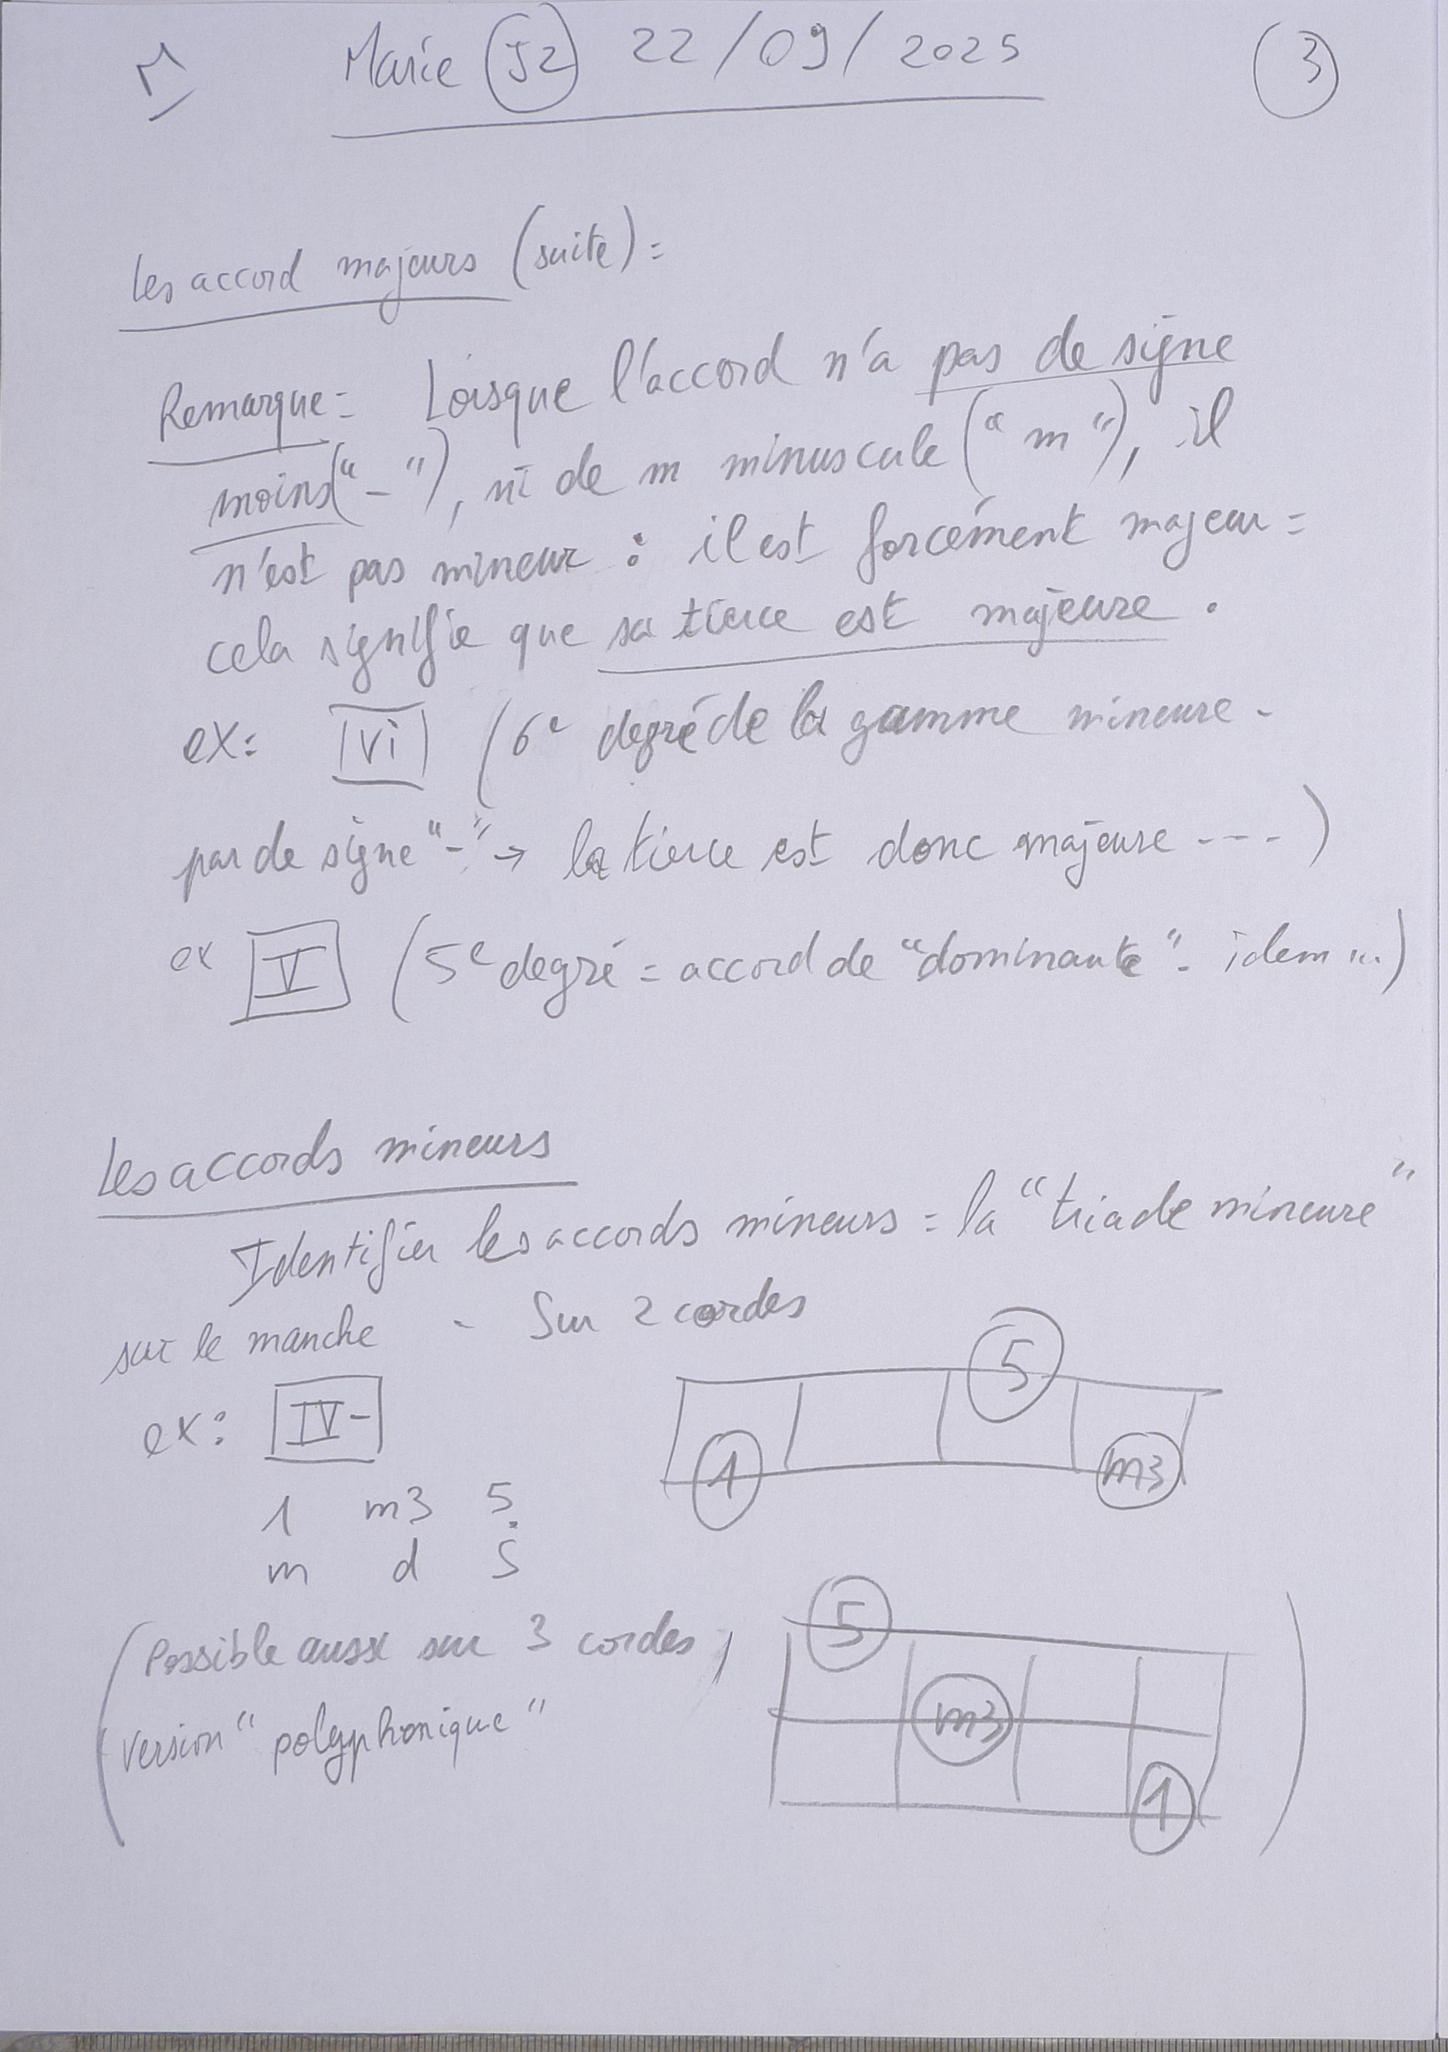 Marie (J2) 22/09/2025 (3)
Les accord majeurs (suite) =
Remarque = Lorsque l'accord n'a pas de signe
moins ("-"), ni de m minuscule ("m"), il
n'est pas mineur : il est forcément majeur =
cela signifie que sa tierce est majeure.
ex: VI (6e degré de la gamme mineure -
pas de signe "-" → la tierce est donc majeure ----)
ex V (5e degré = accord de "dominante" - idem ...)
Les accords mineurs
Identifier les accords mineurs = la "triade mineure"
sur le manche - Sur 2 cordes
5
ex: IV-
1 m3
1 m3 5
m d S
(Possible aussi sur 3 cordes,
version "polyphonique"
5
m3
1)